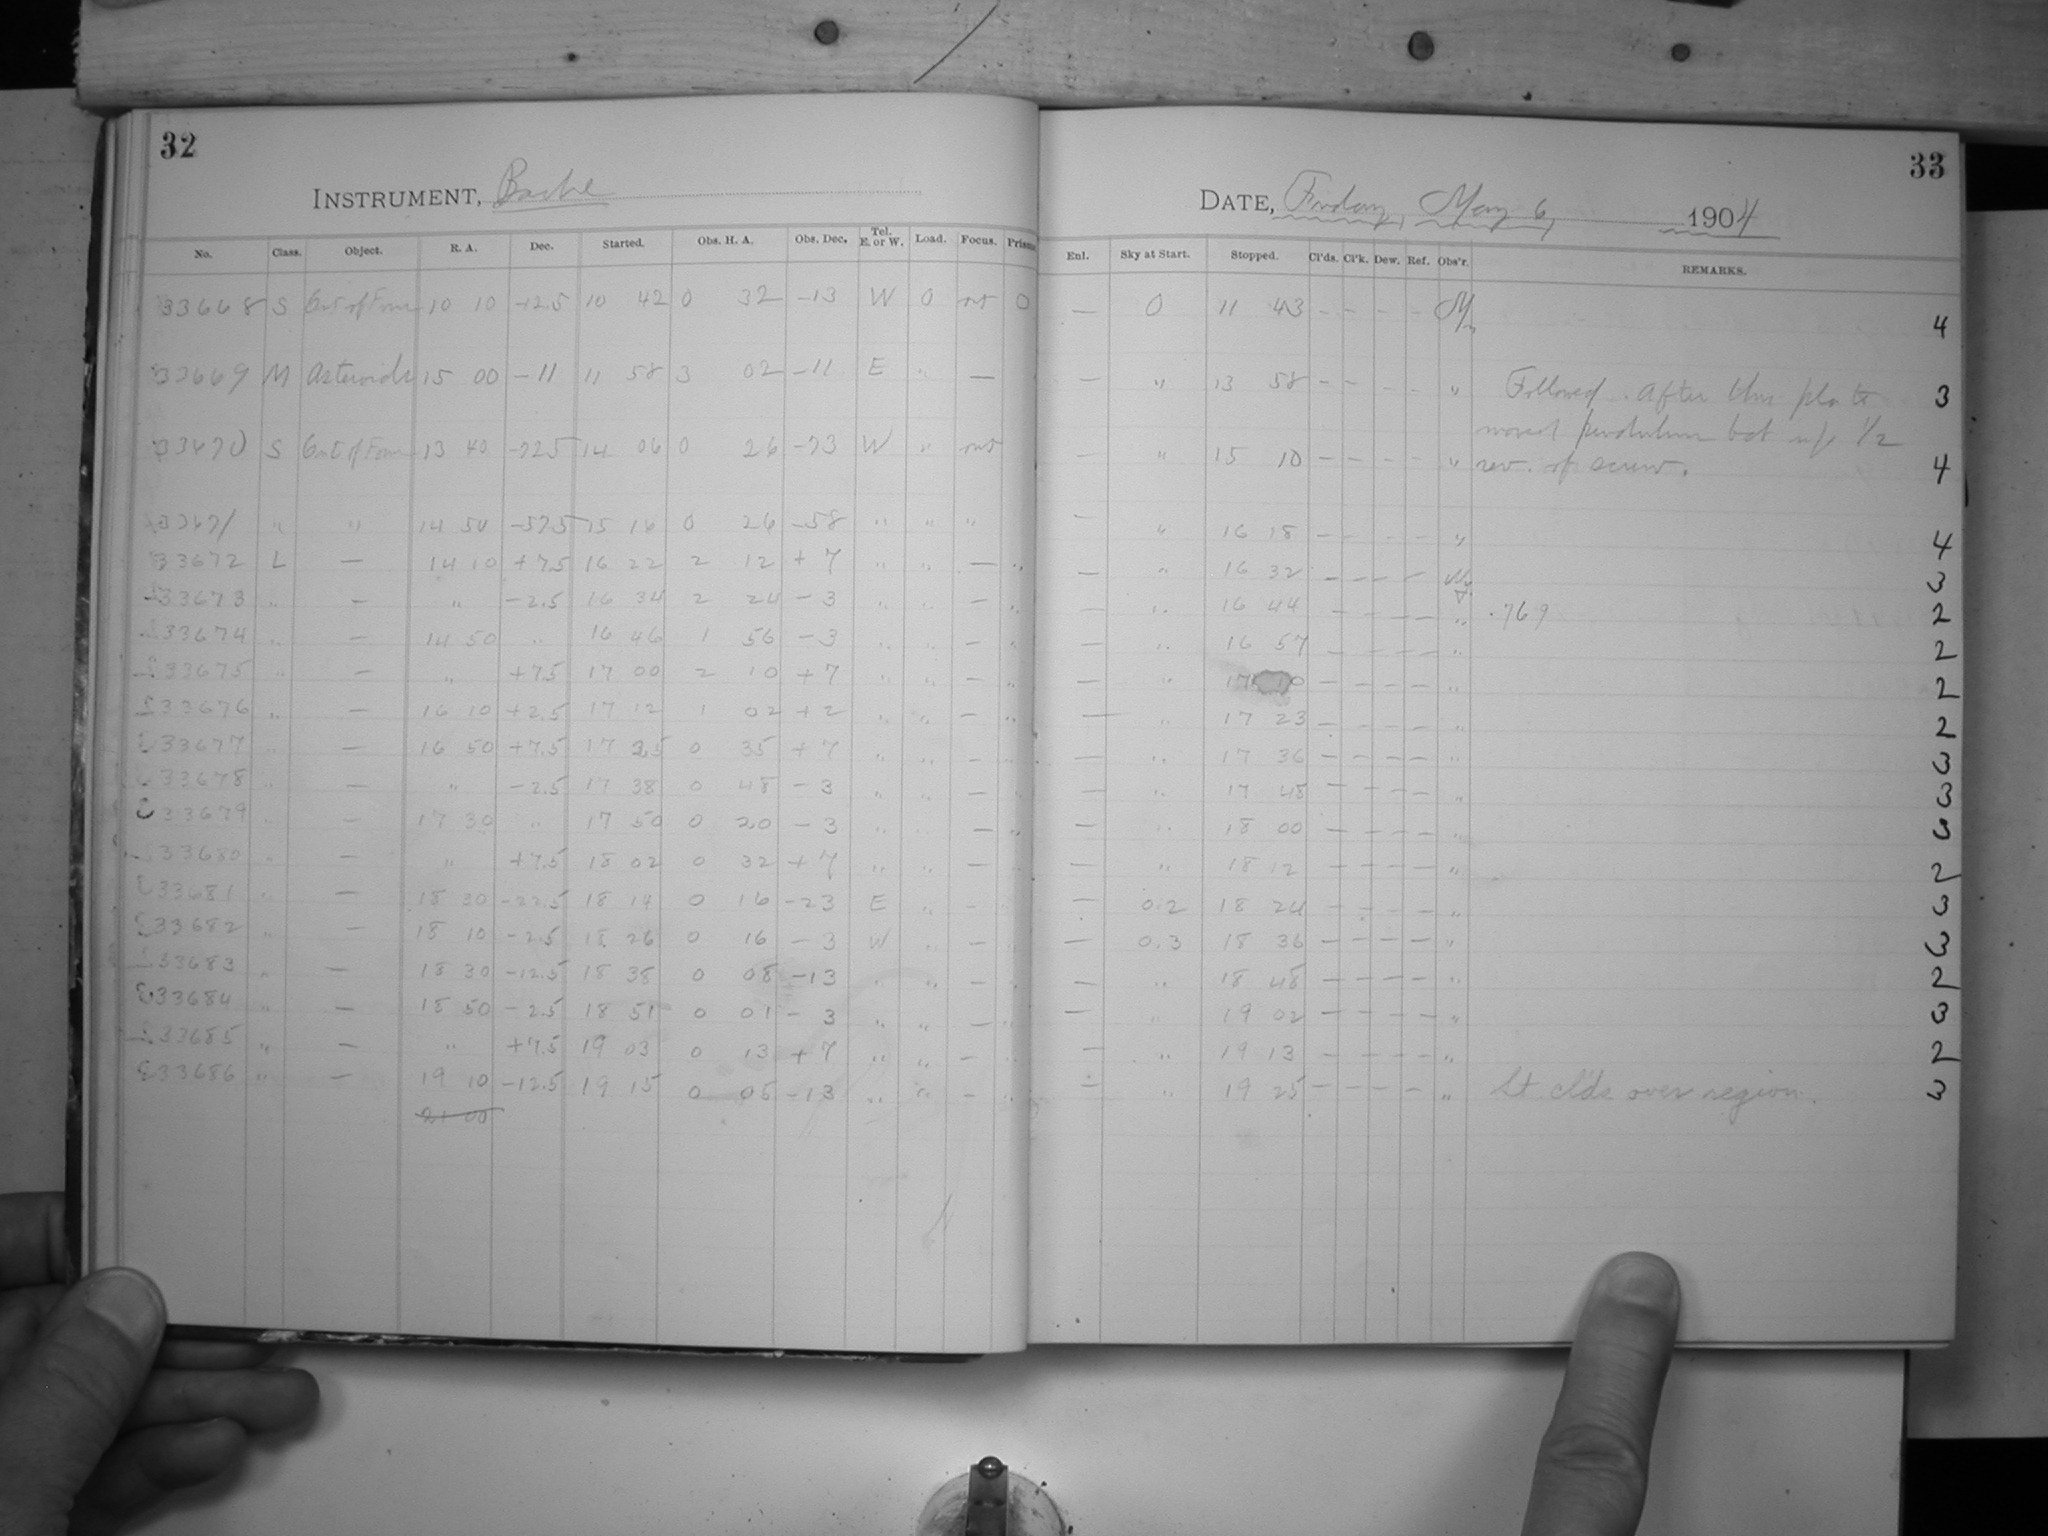 32
INSTRUMENT, Bache
No. Class. Object. R. A. Dec. Started. Obs. H. A. Obs. Dec. Tel. E. or W. Load. Focus. Prism
33668 S Out of Focus 10 10 -12.5 10 42 0 32 -13 W 0 out 0
33669 M Asteroids 15 00 -11 11 58 3 02 -11 E " —
33670 S Out of Focus 13 40 -72.5 14 06 0 26 -73 W " out
33671 " " 14 50 -57.5 15 16 0 26 -58 " " "
33672 L — 14 10 +7.5 16 22 2 12 +7 " " — "
33673 " — " -2.5 16 34 2 24 -3 " " — "
33674 " — 14 50 " 16 46 1 56 -3 " " — "
33675 " — " +7.5 17 00 2 10 +7 " " — "
33676 " — 16 10 +2.5 17 12 1 02 +2 " " — "
33677 " — 16 50 +7.5 17 25 0 35 +7 " " — "
33678 " — " -2.5 17 38 0 48 -3 " " — "
33679 " — 17 30 " 17 50 0 20 -3 " " — "
33680 " — " +7.5 18 02 0 32 +7 " " — "
33681 " — 18 30 -22.5 18 14 0 16 -23 E " — "
33682 " — 18 10 -2.5 18 26 0 16 -3 W " — "
33683 " — 18 30 -12.5 18 38 0 08 -13 " " — "
33684 " — 18 50 -2.5 18 51 0 01 -3 " " — "
33685 " — " +7.5 19 03 0 13 +7 " " — "
33686 " — 19 10 -12.5 19 15 0 05 -13 " " — "
21 00
33
DATE, Friday, May 6, 1904
Enl. Sky at Start. Stopped. Cl'ds. Cl'k. Dew. Ref. Obs'r. REMARKS.
— 0 11 43 - - - - M 4
— " 13 58 - - - - " Followed. After this plate 3
moved pendulum bob up 1/2
— " 15 10 - - - - " rev. of screw. 4
— " 16 18 - - - - " 4
— " 16 32 — — — — 3
" 16 44 — — — — " .769 2
— " 16 57 — — — — " 2
— " 17 10 — — — — " 2
— " 17 23 — — — — " 2
— " 17 36 — — — — " 3
— " 17 48 — — — — " 3
— " 18 00 — — — — " 3
— " 18 12 — — — — " 2
— 0.2 18 24 — — — — " 3
— 0.3 18 36 — — — — " 3
— " 18 48 — — — — " 2
— " 19 02 — — — — " 3
— " 19 13 — — — — " 2
— " 19 25 — — — — " Lt. clds over region. 3